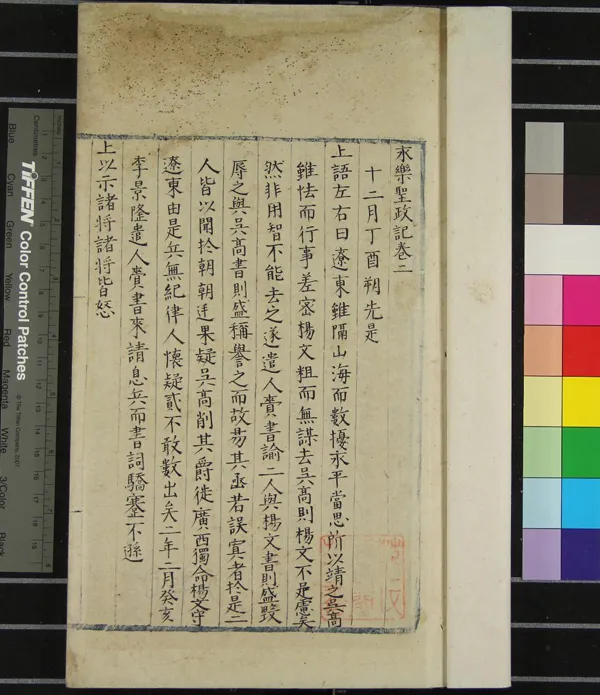 永樂聖政記卷二
十二月丁酉朔先是
上語左右曰遼東雖隔山海而數擾永平當思所以靖之吳高
雖怯而行事差密楊文粗而無謀去吳高則楊文不足慮矣
然非用智不能去之遂遣人賫書諭二人與楊文書則盛毀
辱之與吳高書則盛稱譽之而故易其函若誤寘者於是二
人皆以聞於朝朝廷果疑吳高削其爵徙廣西獨命楊文守
遼東由是兵無紀律人懷疑貳不敢數出矣二年二月癸亥
李景隆遣人賫書來請息兵而書詞驕蹇不遜
上以示諸将諸将皆怒
TIFFEN Color Control Patches
© The Tiffen Company, 2007
Centimetres
Blue
Cyan
Green
Yellow
Red
Magenta
White
3/Color
Black